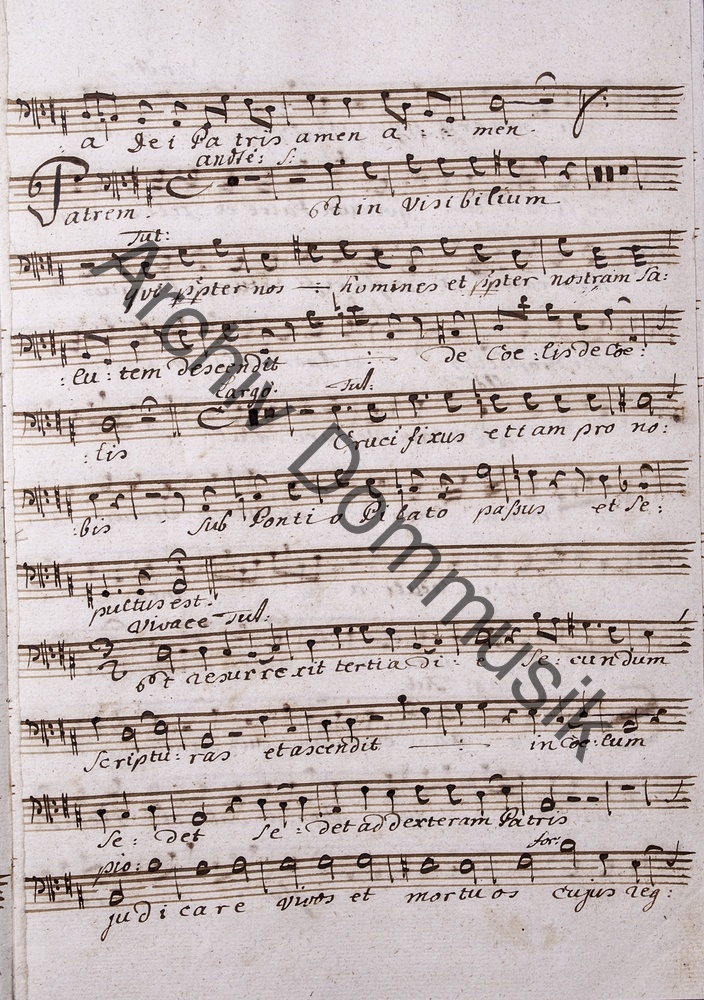 a Dei Patris amen a : : men.
andte: S:
Patrem. Et in visibilium
Tut:
qui ppter nos homines et ppter nostram sa:
:lu: tem descendit de Coe: lis de Coe:
largo. Tut:
:lis Cruci fixus etiam pro no:
:bis sub Ponti o Pilato paßus et se:
pultus est.
Vivace Tut:
Et resurrexit tertia di: e se: cundum
scriptu: ras et ascendit in Coe: lum
se: det se: det ad dexteram Patris
pio: for:
judicare vivos et mortuos cujus reg:
Archiv Dommusik